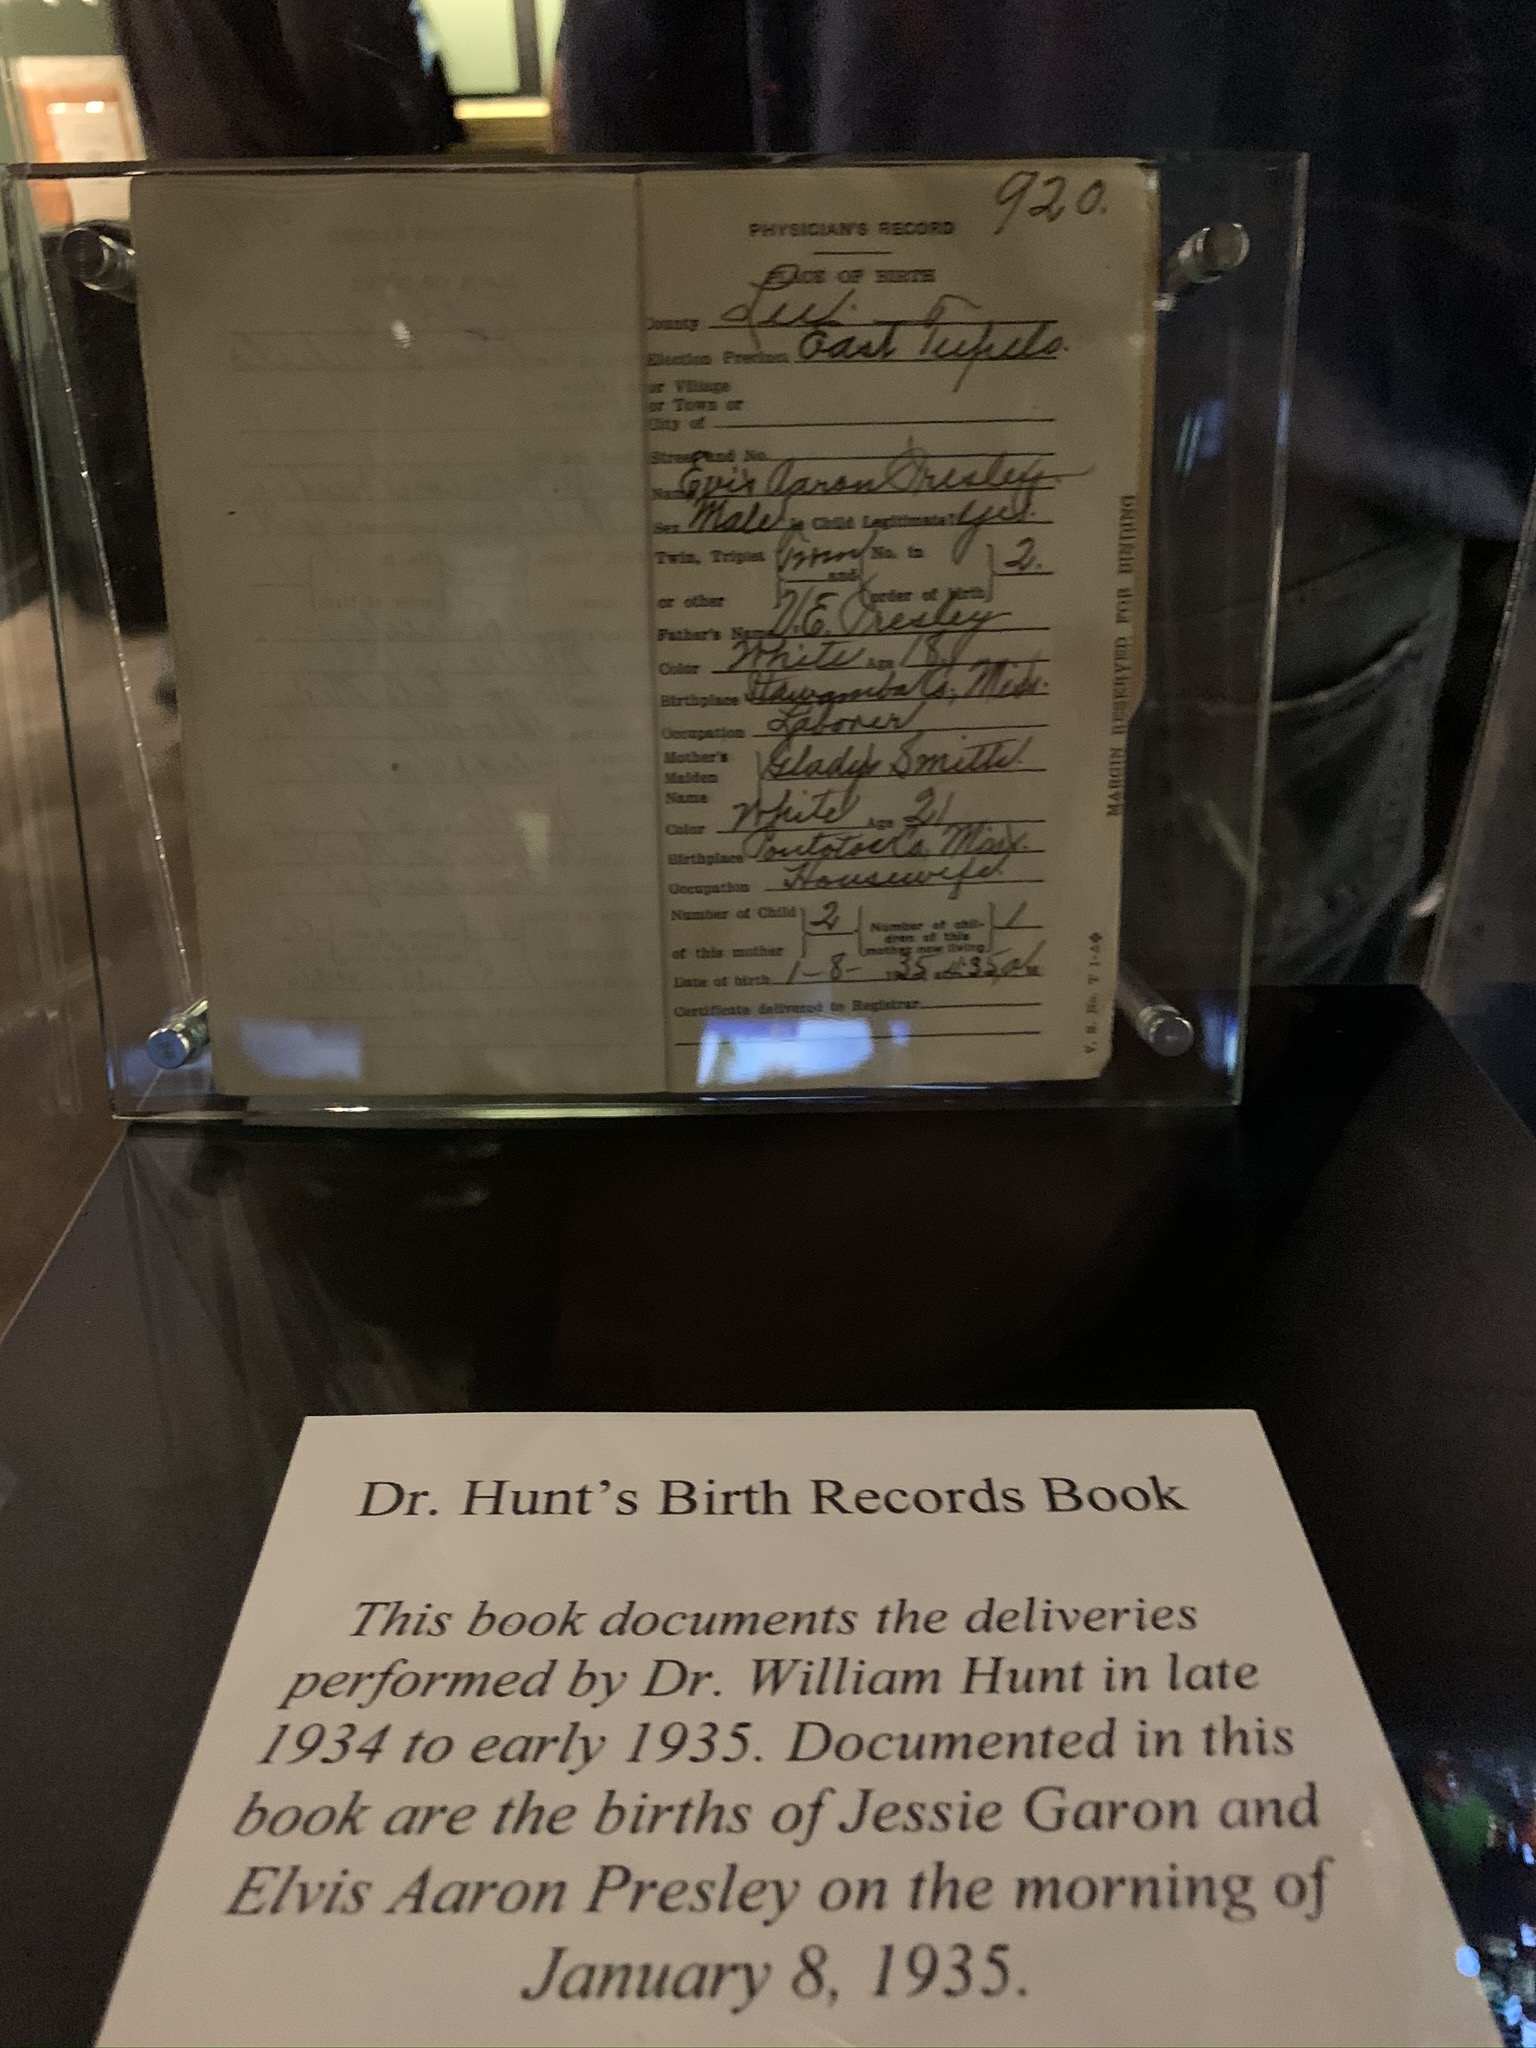 920.
PHYSICIAN'S RECORD
PLACE OF BIRTH
County Lee.
Election Precinct East Tupelo.
or Village
or Town or
City of
Street and No.
Name Evis Aaron Presley.
Sex Male Is Child Legitimate? Yes.
Twin, Triplet Twin No. in 2.
and
or other order of birth
Father's Name V.E. Presley
Color White Age 18
Birthplace Itawamba Co, Miss.
Occupation Laborer
Mother's Gladys Smith.
Maiden
Name
Color White Age 21
Birthplace Pontotoc Co, Miss.
Occupation Housewife.
Number of Child 2 Number of chil- 1
dren of this
of this mother mother now living
Date of birth 1-8- 1935 at 4:35 a M
Certificate delivered to Registrar
MARGIN RESERVED FOR BINDING
V. S. No. T 1-A
Dr. Hunt's Birth Records Book
This book documents the deliveries
performed by Dr. William Hunt in late
1934 to early 1935. Documented in this
book are the births of Jessie Garon and
Elvis Aaron Presley on the morning of
January 8, 1935.